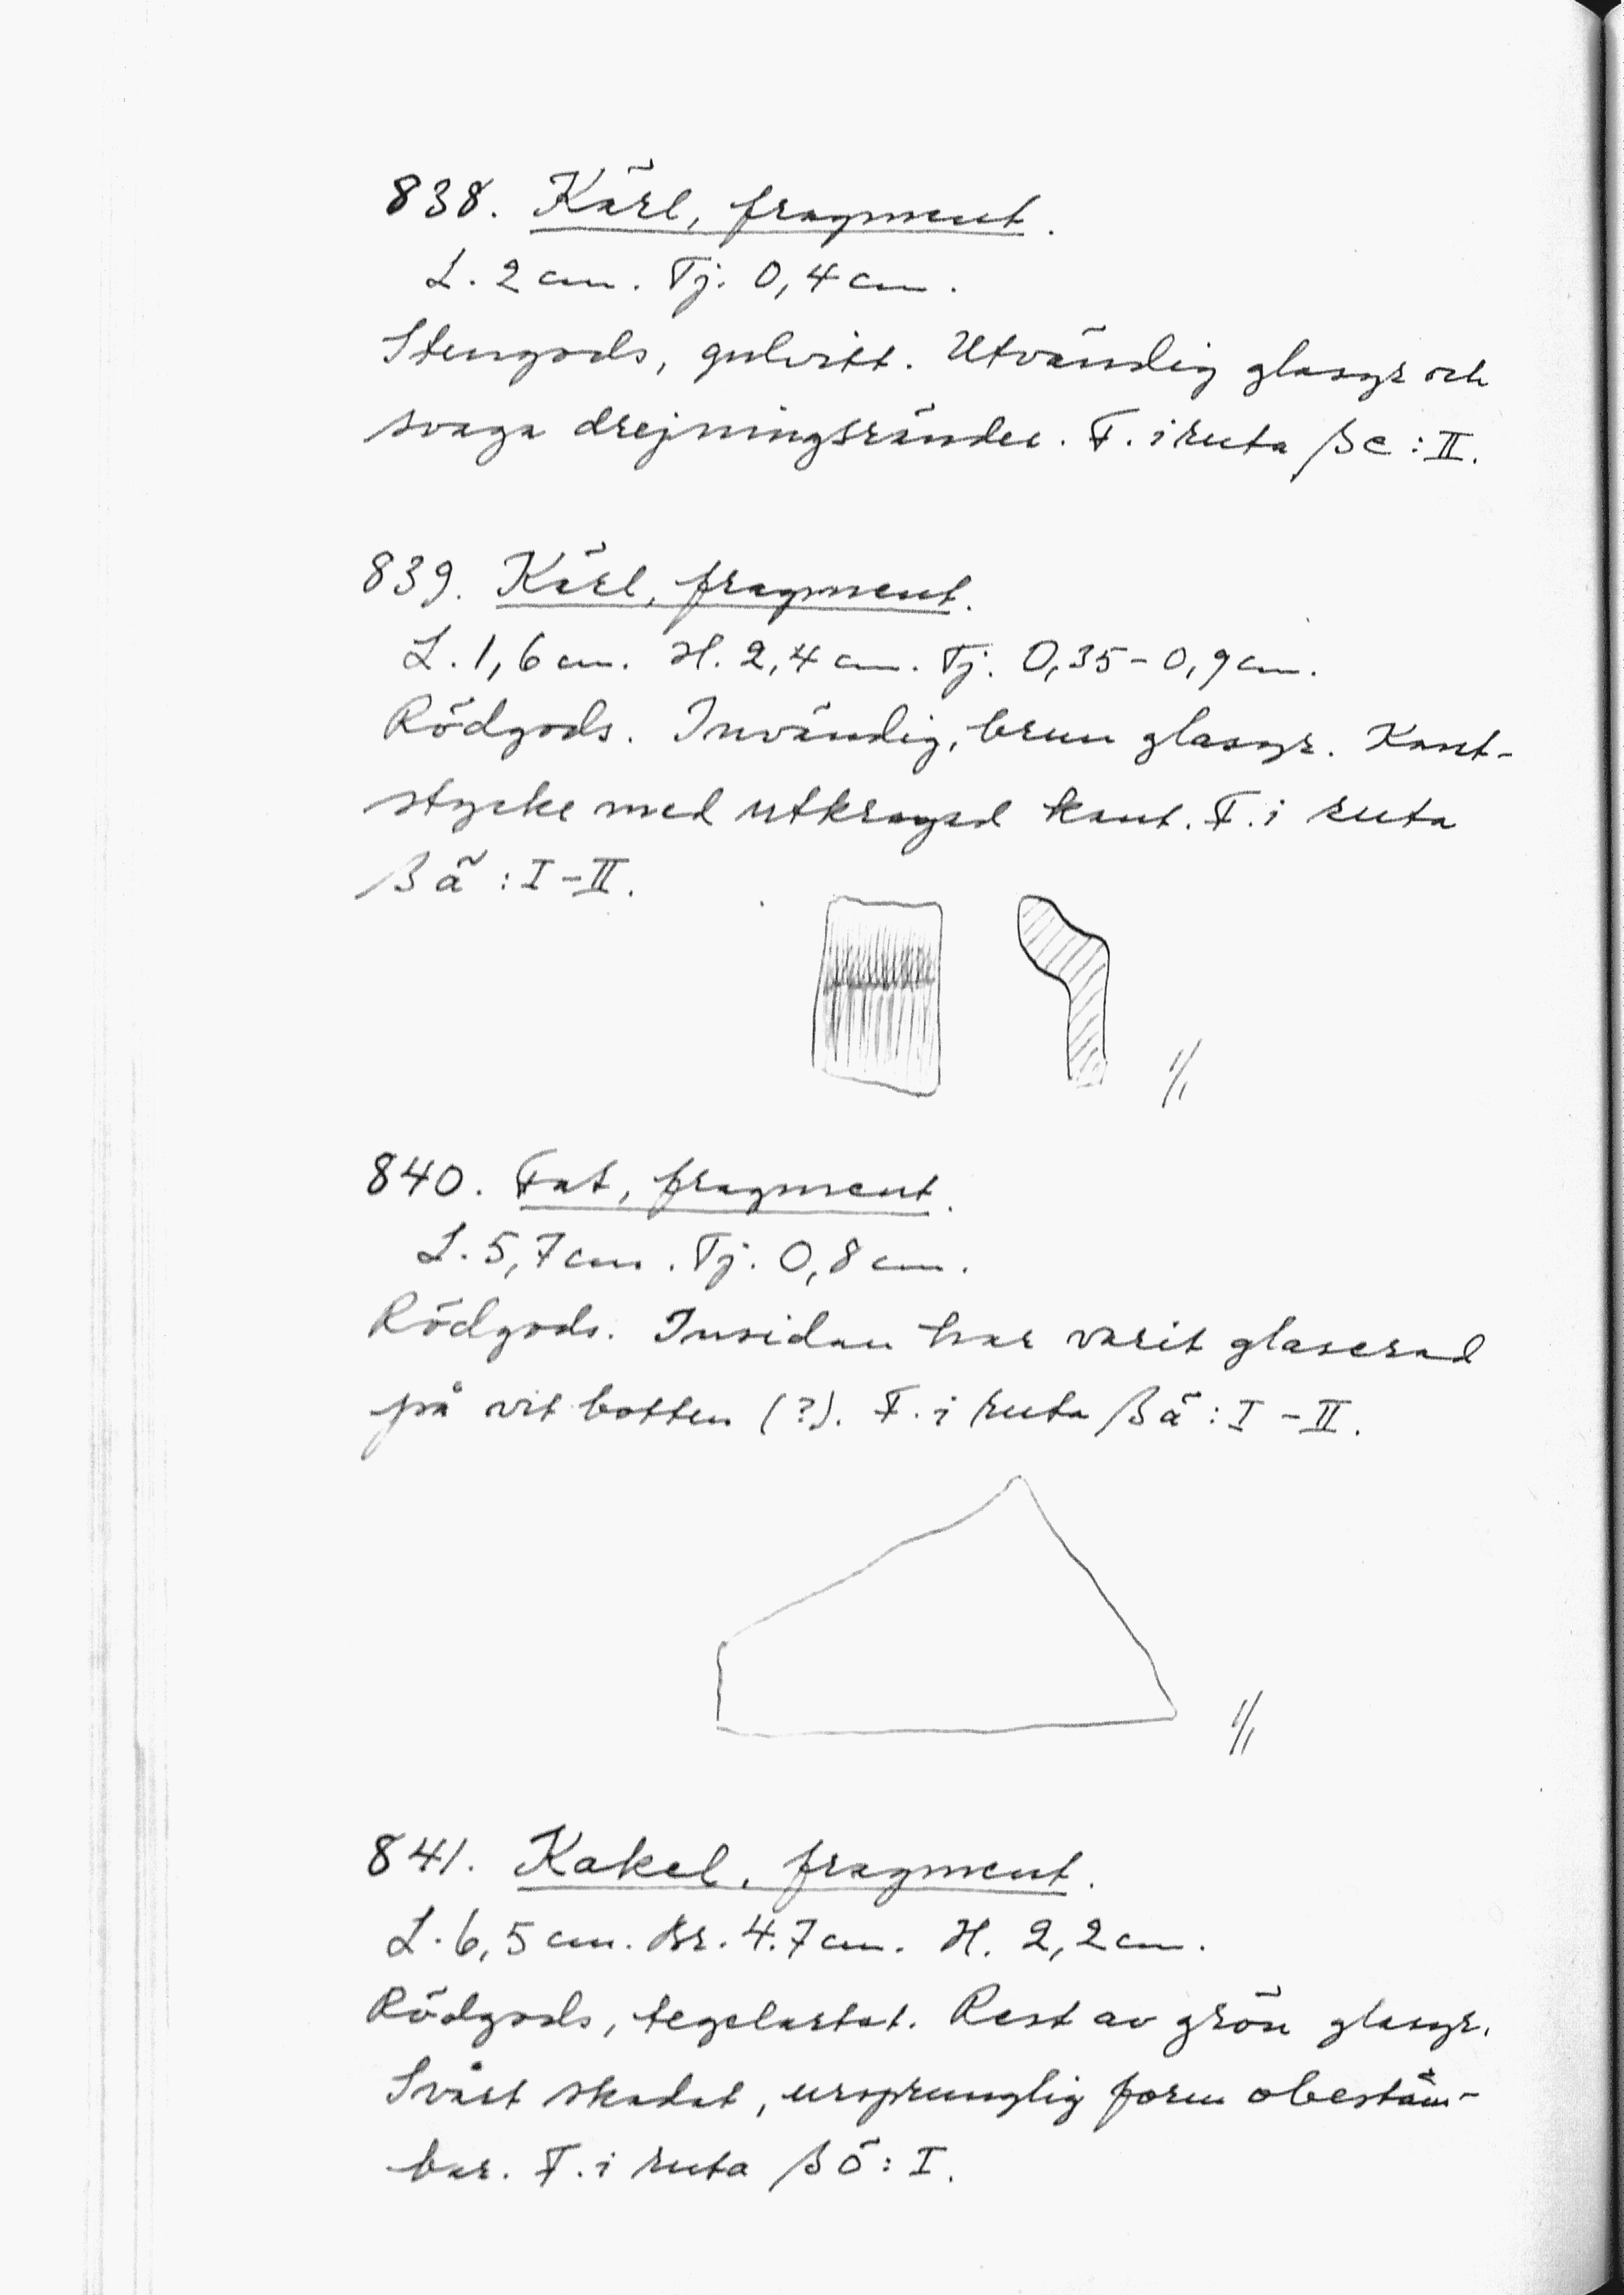 838. Kärl, fragment.
L. 2 cm. Tj. 0,4 cm.
Stengods, gulvitt. Utvändig glasyr och
svaga drejningsränder. F. i ruta βc : II.
839. Kärl, fragment.
L. 1,6 cm. H. 2,4 cm. Tj. 0,35-0,9 cm.
Rödgods. Invändig, brun glasyr. Kant-
stycke med utkragad kant. F. i ruta
βä : I-II.
1/1
840. Fat, fragment.
L. 5,7 cm. Tj. 0,8 cm.
Rödgods. Insidan har varit glaserad
på vit botten (?). F. i ruta βä : I-II.
1/1
841. Kakel, fragment.
L. 6,5 cm. Br. 4.7 cm. H. 2,2 cm.
Rödgods, tegelartat. Rest av grön glasyr.
Svårt skadat, ursprunglig form obestäm-
bar. F. i ruta βö : I.